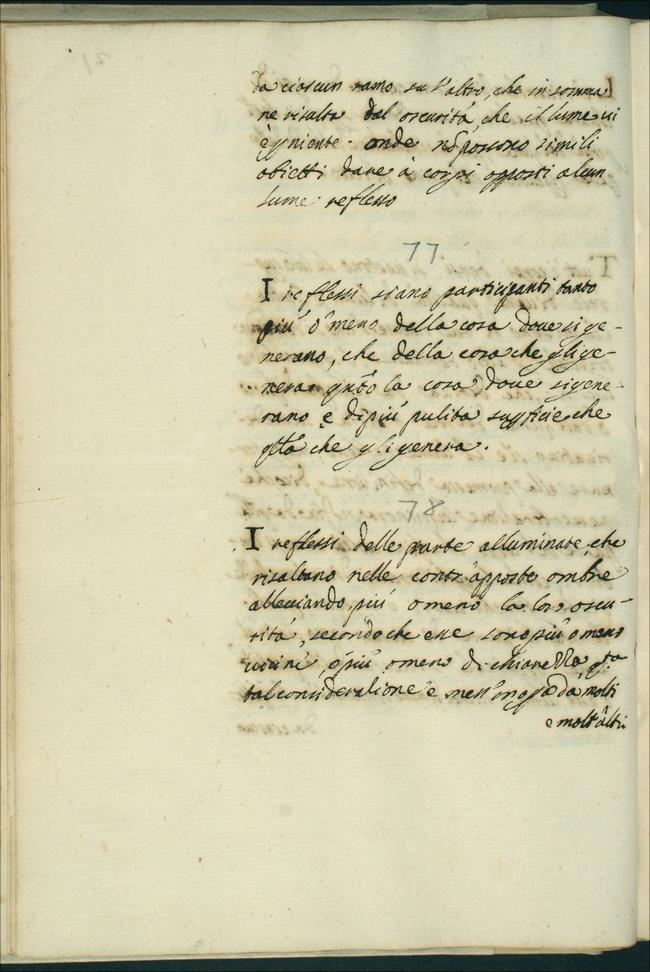 da ciascun ramo su l'altro, che in somma
ne risulta dal oscurità, che il lume vi
è niente. onde nõ possono simili
obietti dare à corpi opposti alcun
lume reflesso
77
I reflessi siano participanti tanto
più ò meno della cosa doue si ge-
nerano, che della cosa che gli ge-
nera, quãto la cosa doue si gene-
rano e di più pulita supficie che
qllá che gli genera.
78
I reflessi delle parte alluminate, che
risaltano nelle contr'apposte ombre
alleuiando più o meno la loro oscu-
rità, secondo che esse sono più o meno
uicine, ò più o meno di chiarezza qta
tal consideratione è mess' in op̃a da molti
e molt'altri